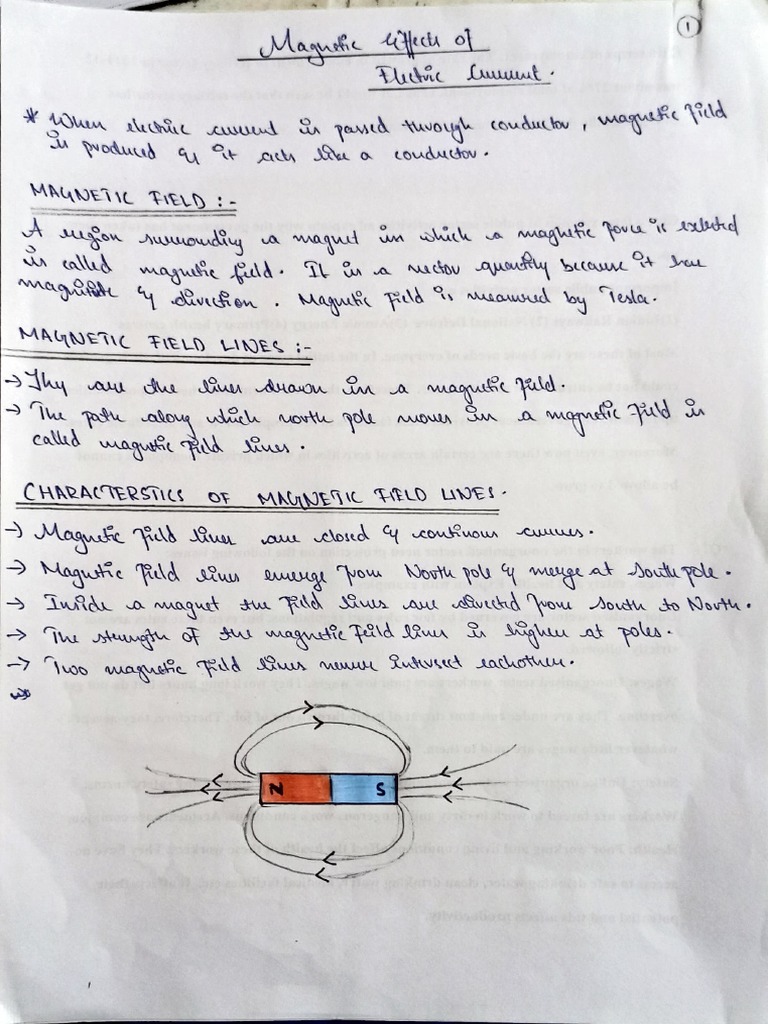 1
Magnetic Effects of
Electric Current.
* When electric current is passed through conductor, magnetic field
is produced & it acts like a conductor.
MAGNETIC FIELD :-
A region surrounding a magnet in which a magnetic force is exerted
is called magnetic field. It is a vector quantity because it has
magnitude & direction. Magnetic Field is measured by Tesla.
MAGNETIC FIELD LINES :-
→ They are the lines drawn in a magnetic field.
→ The path along which north pole moves in a magnetic field is
called magnetic field lines.
CHARACTERSTICS OF MAGNETIC FIELD LINES.
→ Magnetic field lines are closed & continous curves.
→ Magnetic field lines emerge from North pole & merge at South pole.
→ Inside a magnet the field lines are directed from South to North.
→ The strength of the magnetic field lines is higher at poles.
→ Two magnetic field lines never intersect eachother.
N S